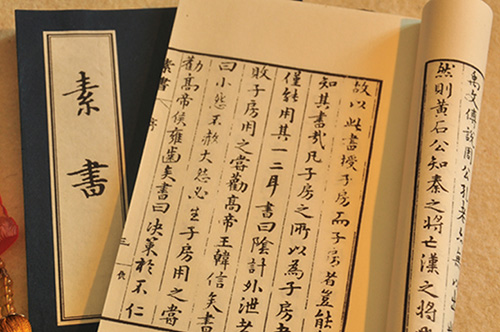 禹文傅說周公孔老亦無以
然則黃石公知秦之將亡漢之將
故以此書授子房而子房者豈能
知其書哉凡子房之所以為子房者
僅能用其一二耳書曰陰計外泄者
敗子房用之嘗勸高帝王韓信矣書
曰小怨不赦大怨必生子房用之嘗
勸高帝侯雍齒矣書曰決策於不仁
素書 序 三
素書